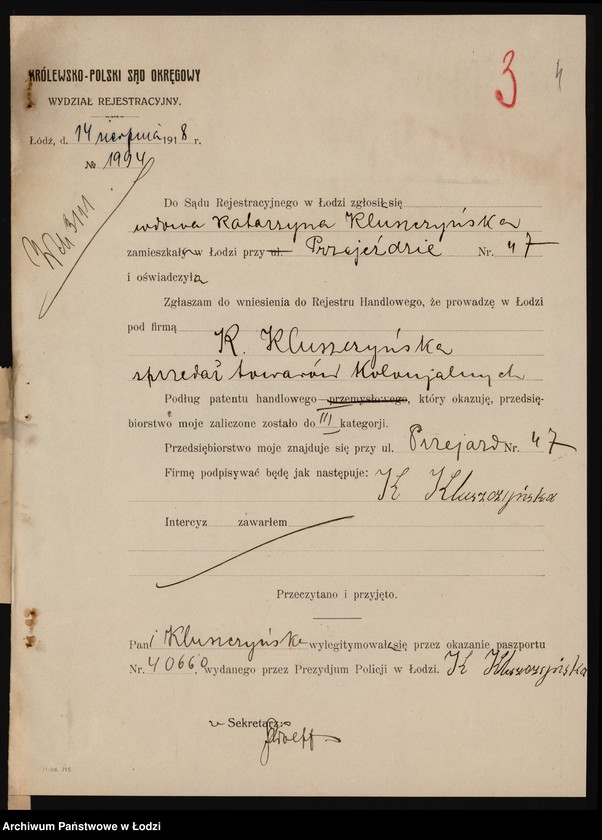 3
4
KRÓLEWSKO-POLSKI SĄD OKRĘGOWY
WYDZIAŁ REJESTRACYJNY.
Łódź, d. 14 sierpnia 1918 r.
№ 1994
3111
Do Sądu Rejestracyjnego w Łodzi zgłosiła się
wdowa Katarzyna Kluszczyńska
zamieszkała w Łodzi przy ul. Przejeździe Nr. 47
i oświadczyła
Zgłaszam do wniesienia do Rejestru Handlowego, że prowadzę w Łodzi
pod firmą
K. Kluszczyńska
sprzedaż towarów kolonjalnych
Podług patentu handlowego przemysłowego, który okazuję, przedsię-
biorstwo moje zaliczone zostało do III kategorji.
Przedsiębiorstwo moje znajduje się przy ul. Przejazd Nr. 47
Firmę podpisywać będę jak następuje: K Kluszczyńska
Intercyz zawarłem
Przeczytano i przyjęto.
Pani Kluszczyńska wylegitymowała się przez okazanie paszportu
Nr. 40660, wydanego przez Prezydjum Policji w Łodzi. K Kluszczyńska
Sekretarz:
Archiwum Państwowe w Łodzi